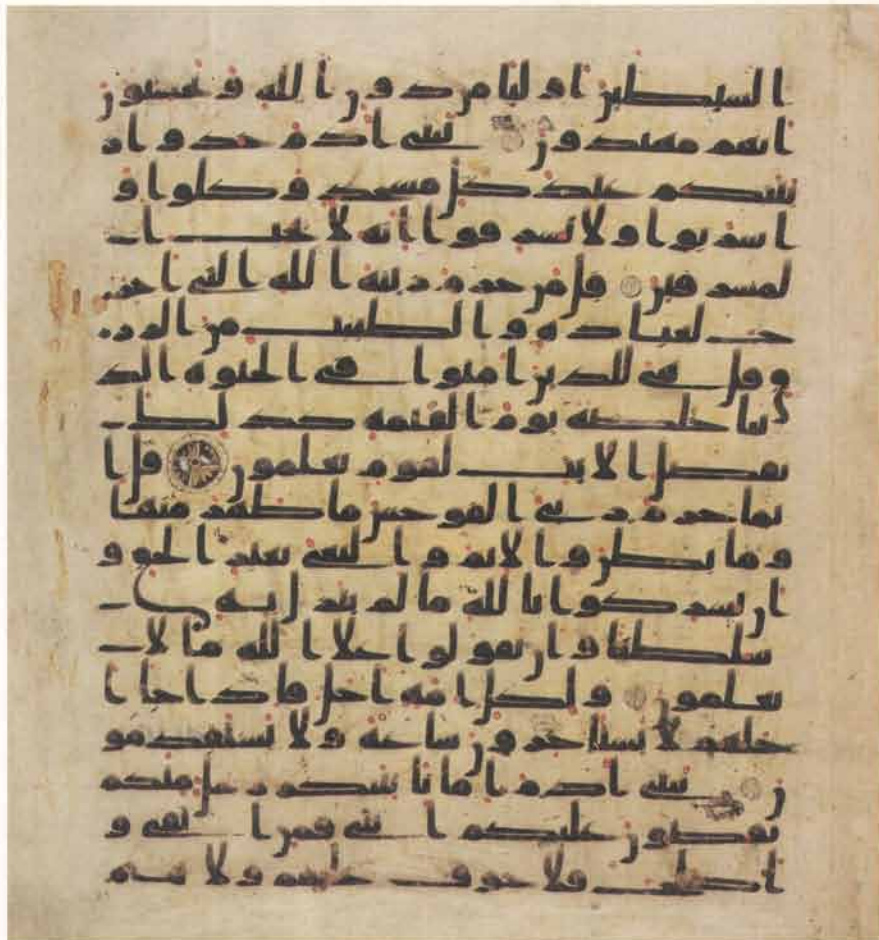 الشيطين اوليا من دون الله ويحسبون
انهم مهتدون يبني ادم خذوا ز
ينتكم عند كل مسجد وكلوا و
اشربوا ولا تسرفوا انه لا يحب ا
لمسرفين قل من حرم زينة الله التي اخر
ج لعباده والطيبت من الرز
ق قل هي للذين امنوا في الحيوة الد
نيا خلصة يوم القيمة كذلك
نفصل الايت لقوم يعلمون قل ا
نما حرم ربي الفوحش ما ظهر منها
وما بطن والاثم والبغي بغير الحق و
ان تشركوا بالله ما لم ينزل به
سلطنا وان تقولوا على الله ما لا
تعلمون ولكل امة اجل فاذا جا ا
جلهم لا يستاخرون ساعة ولا يستقدمو
ن يبني ادم اما ياتينكم رسل منكم
يقصون عليكم ايتي فمن اتقى و
اصلح فلا خوف عليهم ولا هم